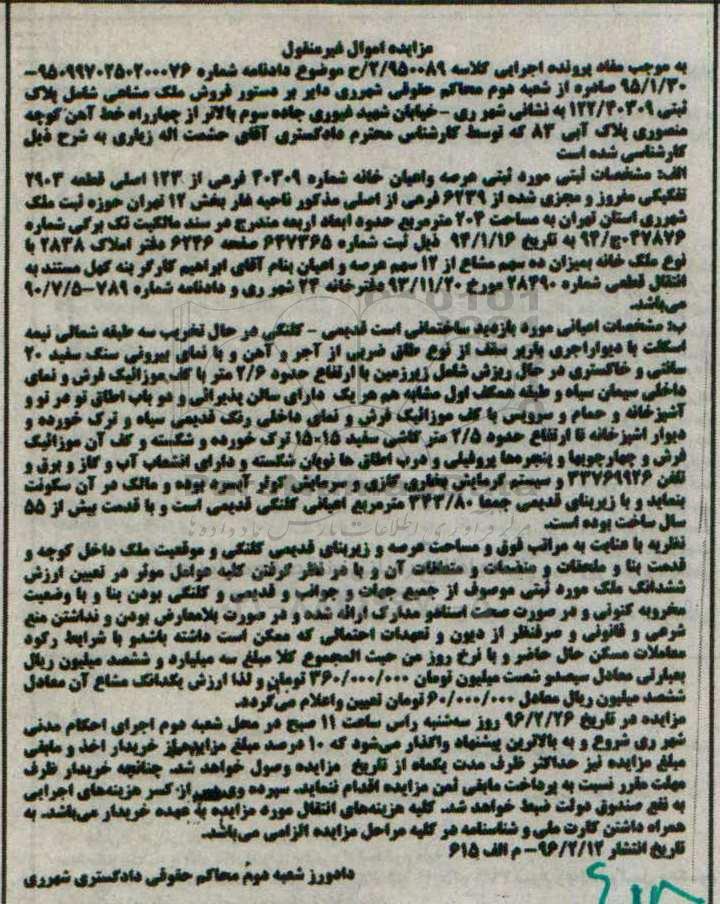 مزایده اموال غیرمنقول
به موجب مفاد پرونده اجرایی کلاسه ۲/۹۵۰۰۸۹/ح موضوع دادنامه شماره ۹۵۰۹۹۷۰۲۵۰۲۰۰۰۷۶-
۹۵/۱/۳۰ صادره از شعبه دوم محاکم حقوقی شهرری دایر بر دستور فروش ملک مشاعی شامل پلاک
ثبتی ۱۲۲/۴۰۳۰۹ به نشانی شهر ری - خیابان شهید غیوری جاده سوم بالاتر از چهارراه خط آهن کوچه
منصوری پلاک آبی ۸۳ که توسط کارشناس محترم دادگستری آقای حشمت اله زیاری به شرح ذیل
کارشناسی شده است
الف: مشخصات ثبتی مورد ثبتی عرصه واعیان خانه شماره ۴۰۳۰۹ فرعی از ۱۲۲ اصلی قطعه ۲۹۰۳
تفکیکی مفروز و مجزی شده از ۶۲۳۹ فرعی از اصلی مذکور ناحیه غار بخش ۱۲ تهران حوزه ثبت ملک
شهرری استان تهران به مساحت ۲۰۴ مترمربع حدود ابعاد اربعه مندرج در سند مالکیت تک برگی شماره
۰۴۷۸۷۶ج/۹۲ به تاریخ ۹۴/۱/۱۶ ذیل ثبت شماره ۶۴۷۳۶۵ صفحه ۶۲۴۶ دفتر املاک ۲۸۳۸ با
نوع ملک خانه بمیزان ده سهم مشاع از ۱۲ سهم عرصه و اعیان بنام آقای ابراهیم کارگر بنه کهل مستند به
انتقال قطعی شماره ۲۸۴۹۰ مورخ ۹۳/۱۱/۲۰ دفترخانه ۲۴ شهر ری و دادنامه شماره ۷۸۹-۹۰/۷/۵
می‌باشد.
ب: مشخصات اعیانی مورد بازدید ساختمانی است قدیمی - کلنگی در حال تخریب سه طبقه شمالی نیمه
اسکلت با دیواراجری باربر سقف از نوع طاق ضربی از آجر و آهن و با نمای بیرونی سنگ سفید ۲۰
سانتی و خاکستری در حال ریزش شامل زیرزمین با ارتفاع حدود ۲/۶ متر با کف موزائیک فرش و نمای
داخلی سیمان سیاه و طبقه همکف اول مشابه هم هر یک دارای سالن پذیرائی و دو باب اطاق تو در تو و
آشپزخانه و حمام و سرویس با کف موزائیک فرش و نمای داخلی رنگ قدیمی سیاه و ترک خورده و
دیوار اشپزخانه تا ارتفاع حدود ۲/۵ متر کاشی سفید ۱۵×۱۵ ترک خورده و شکسته و کف آن موزائیک
فرش و چهارچوبها و پنجره‌ها پروفیلی و درب اطاق ها نوپان شکسته و دارای انشعاب آب و گاز و برق و
تلفن ۳۳۷۶۹۹۲۶ و سیستم گرمایش بخاری گازی و سرمایش کولر آبسرد بوده و مالک در آن سکونت
بنماید و با زیربنای قدیمی جمعا ۳۴۳/۸۰ مترمربع اعیانی کلنگی قدیمی است و با قدمت بیش از ۵۵
سال ساخت بوده است.
نظریه با عنایت به مراتب فوق و مساحت عرصه و زیربنای قدیمی کلنگی و موقعیت ملک داخل کوچه و
قدمت بنا و ملحقات و منضمات و متعلقات آن و با در نظر گرفتن کلیه عوامل موثر در تعیین ارزش
ششدانگ ملک مورد ثبتی موصوف از جمیع جهات و جوانب و قدیمی و کلنگی بودن بنا و با وضعیت
مخروبه کنونی و در صورت صحت اسنادو مدارک ارائه شده و در صورت بلامعارض بودن و نداشتن منع
شرعی و قانونی و صرفنظر از دیون و تعهدات احتمالی که ممکن است داشته باشدو با شرایط رکود
معاملات مسکن حال حاضر و با نرخ روز من حیث المجموع کلا مبلغ سه میلیارد و ششصد میلیون ریال
بعبارتی معادل سیصدو شصت میلیون تومان ۳۶۰/۰۰۰/۰۰۰ تومان و لذا ارزش یکدانگ مشاع آن معادل
ششصد میلیون ریال معادل ۶۰/۰۰۰/۰۰۰ تومان تعیین واعلام می‌گردد.
مزایده در تاریخ ۹۶/۲/۲۶ روز سه‌شنبه راس ساعت ۱۱ صبح در محل شعبه دوم اجرای احکام مدنی
شهر ری شروع و به بالاترین پیشنهاد واگذار می‌شود که ۱۰ درصد مبلغ مزایده از خریدار اخذ و مابقی
مبلغ مزایده نیز حداکثر ظرف مدت یکماه از تاریخ مزایده وصول خواهد شد. چنانچه خریدار ظرف
مهلت مقرر نسبت به پرداخت مابقی ثمن مزایده اقدام ننماید. سپرده وی پس از کسر هزینه‌های اجرایی
به نفع صندوق دولت ضبط خواهد شد. کلیه هزینه‌های انتقال مورد مزایده به عهده خریدار می‌باشد. به
همراه داشتن کارت ملی و شناسنامه در کلیه مراحل مزایده الزامی می‌باشد.
تاریخ انتشار ۹۶/۲/۱۲- م الف ۶۱۵
دادورز شعبه دوم محاکم حقوقی دادگستری شهرری